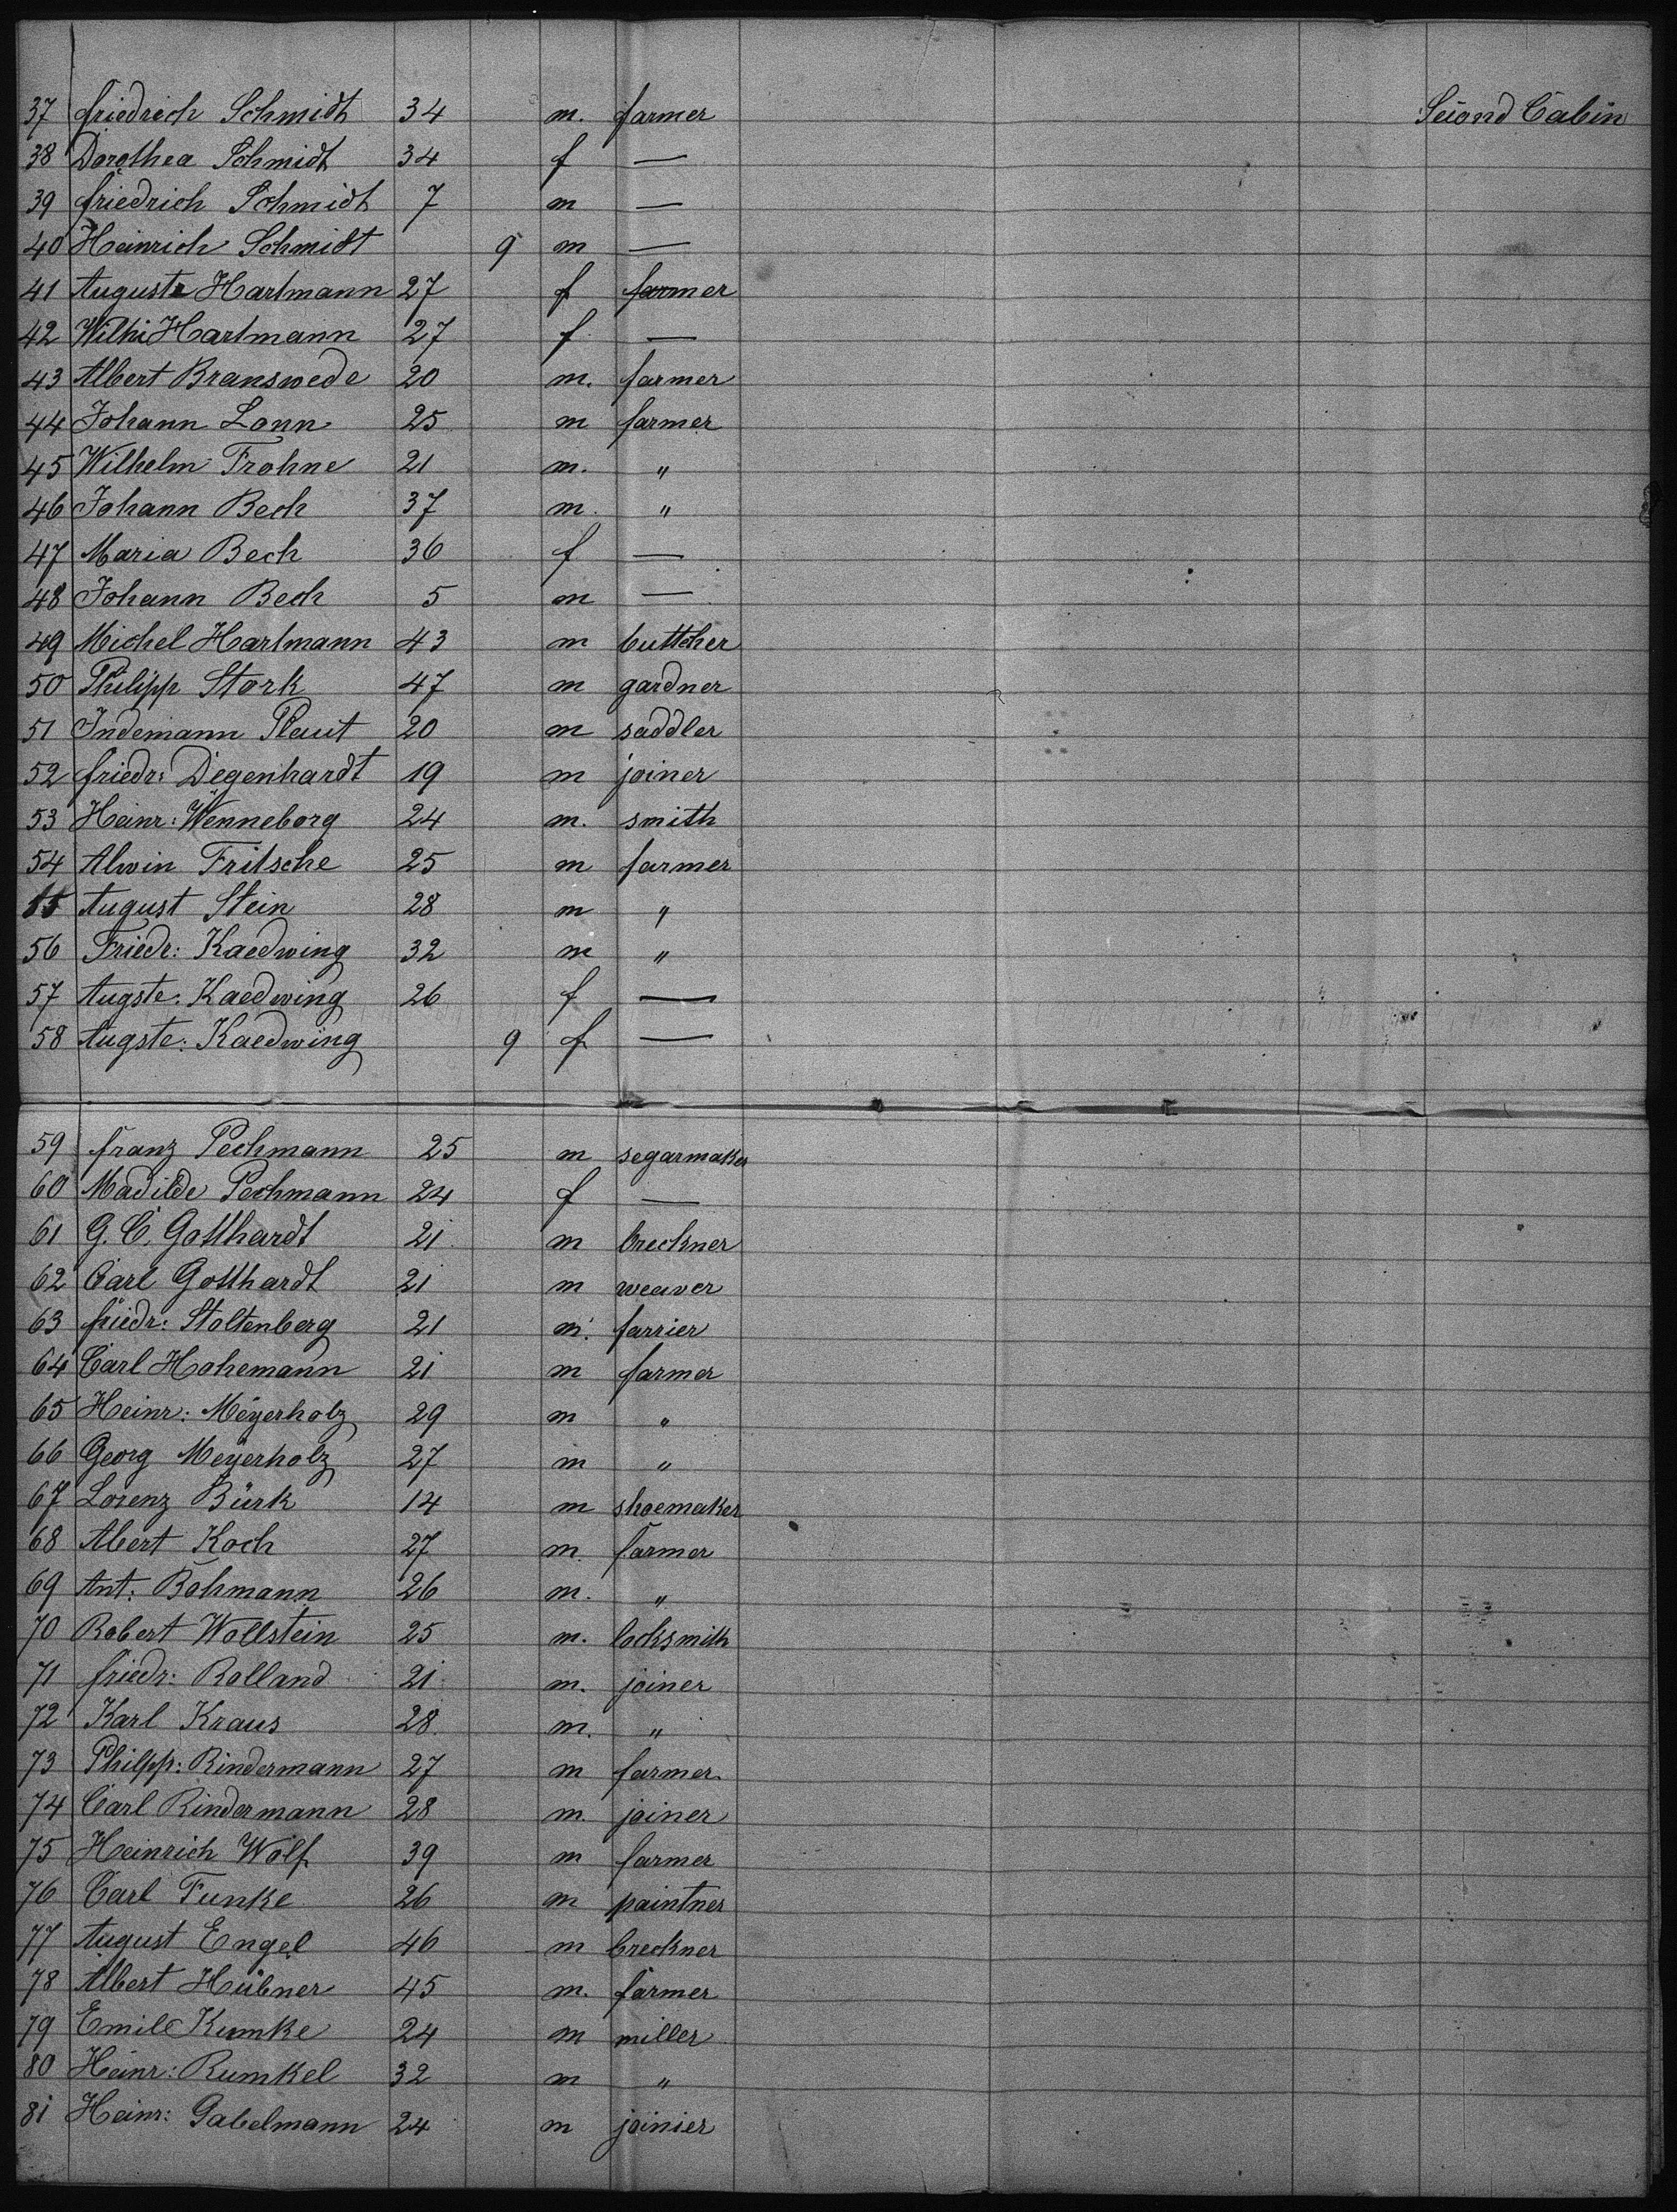 37 Friedrich Schmidt 34 m. farmer Second Cabin
38 Dorothea Schmidt 34 f —
39 Friedrich Schmidt 7 m —
40 Heinrich Schmidt 9 m —
41 Auguste Hartmann 27 f farmer
42 Hartmann 27 f —
43 Albert Branswede 20 m. farmer
44 Johann Lonn 25 m farmer
45 Wilhelm Frohne 21 m. "
46 Johann Bech 37 m. "
47 Maria Bech 36 f —
48 Johann Bech 5 m —
49 Michel Hartmann 43 m buttcher
50 Philipp Stork 47 m gardner
51 Indemann Plaut 20 m saddler
52 Friedr: Degenhardt 19 m joiner
53 Heinr: Wenneborg 24 m. smith
54 Alwin Fritsche 25 m farmer
55 August Stein 28 m "
56 Friedr: Kaedwing 32 m "
57 Augste: Kaedwing 26 f —
58 Augste: Kaedwing 9 f —
59 Franz Pechmann 25 m segarmaker
60 Madilde Pechmann 24 f —
61 G. C. Gotthardt 21 m breckner
62 Carl Gotthardt 21 m weaver
63 Friedr: Stoltenberg 21 m. farrier
64 Carl Hohemann 21 m farmer
65 Heinr: Meyerholz 29 m "
66 Georg Meyerholz 27 m "
67 Lorenz Bürk 14 m shoemaker
68 Abert Koch 27 m. farmer
69 Ant: Bohmann 26 m. "
70 Robert Wollstein 25 m. locksmith
71 Friedr: Rolland 21 m. joiner
72 Karl Kraus 28 m. "
73 Philpp: Rindermann 27 m farmer
74 Carl Rindermann 28 m. joiner
75 Heinrich Wolf 39 m farmer
76 Carl Funke 26 m paintner
77 August Engel 46 m breckner
78 Albert Hübner 45 m. farmer
79 Emile Kumke 24 m miller
80 Heinr: Rumkel 32 m "
81 Heinr: Gabelmann 24 m joinier